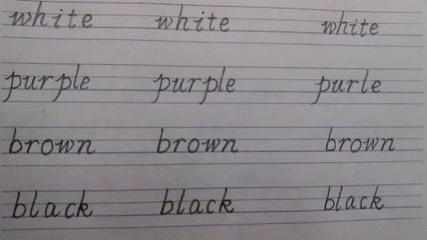 white white white
purple purple purle
brown brown brown
black black black